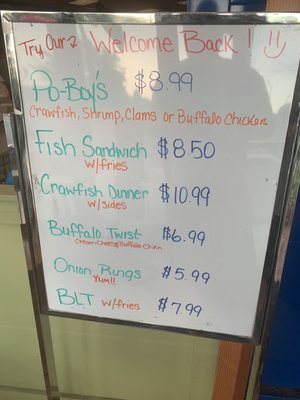 Try Our Welcome Back! :)
Po-Boy's $8.99
Crawfish, Shrump, Clams or Buffalo Chicken
Fish Sandwich $8.50
w/fries
Crawfish Dinner $10.99
w/sides
Buffalo Twist $6.99
Cream Cheese & Buffalo Chicken
Onion Rings $5.99
Yum!!
BLT w/fries $7.99